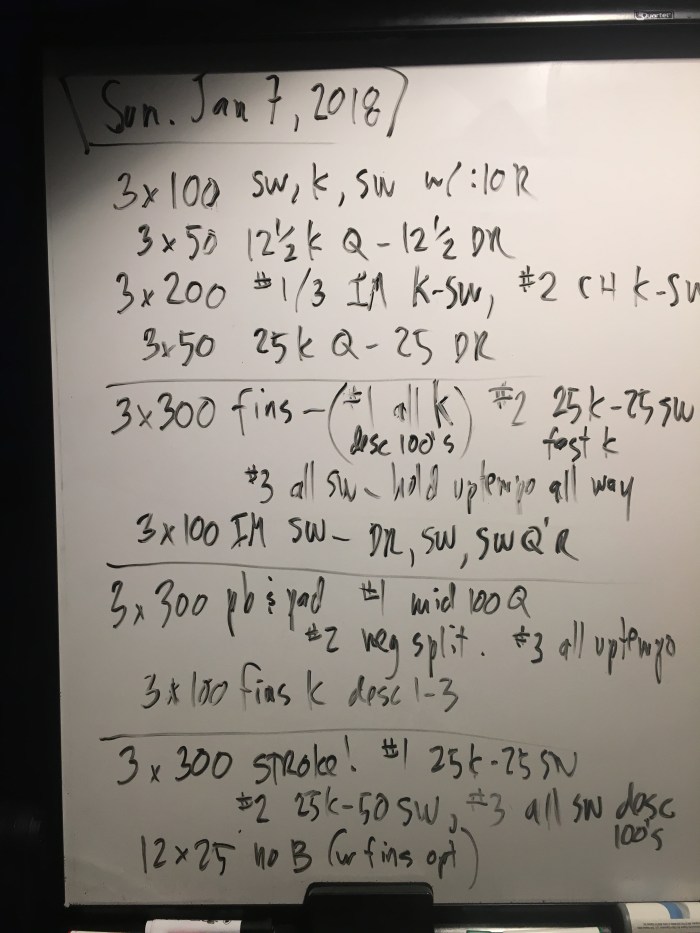 Quartet
Sun. Jan 7, 2018
3x100 SW, K, SW w/ :10 R
3x50 12½ K Q - 12½ DR
3x200 #1/3 IM K-SW, #2 CH K-SW
3x50 25K Q - 25 DR
3x300 fins - (#1 all K) #2 25K-25SW
desc 100's fast K
#3 all SW - hold uptempo all way
3x100 IM SW - DR, SW, SW Q'R
3x300 pb & pad #1 mid 100 Q
#2 neg split. #3 all uptempo
3x100 fins K desc 1-3
3x300 STROKE! #1 25K-25SW
#2 25K-50 SW, #3 all SW desc
100's
12x25 no B (w fins opt)